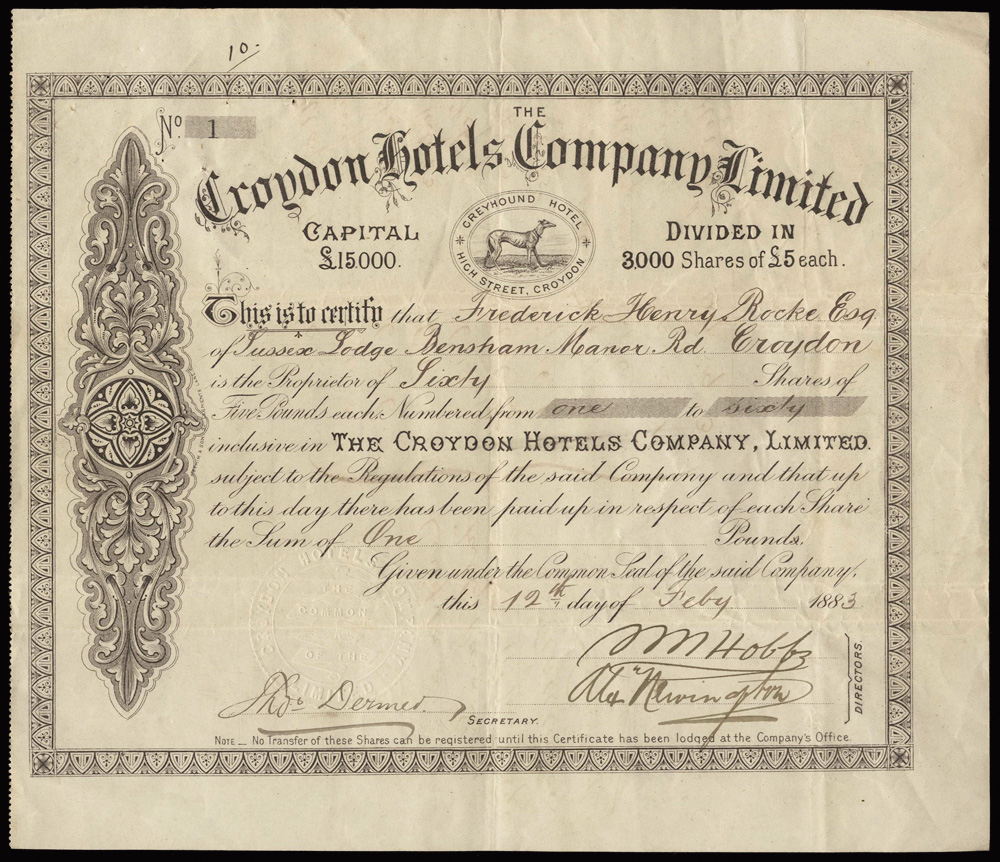 10-
No. 1
THE
Croydon Hotels Company Limited
CAPITAL
£15000.
GREYHOUND HOTEL
HIGH STREET, CROYDON
DIVIDED IN
3,000 Shares of £5 each.
This is to certify that Frederick Henry Rocke Esq
of Sussex Lodge Bensham Manor Rd. Croydon
is the Proprietor of Sixty Shares of
Five Pounds each Numbered from one to sixty
inclusive in THE CROYDON HOTELS COMPANY, LIMITED.
subject to the Regulations of the said Company and that up
to this day there has been paid up in respect of each Share
the Sum of One Pounds.
Given under the Common Seal of the said Company,
this 12th day of Feby 1883
CROYDON HOTELS COMPANY LIMITED
THE
COMMON
OF THE
Hobbs
Alex Newington
DIRECTORS.
Dermed
SECRETARY.
NOTE _ No Transfer of these Shares can be registered until this Certificate has been lodged at the Company's Office.